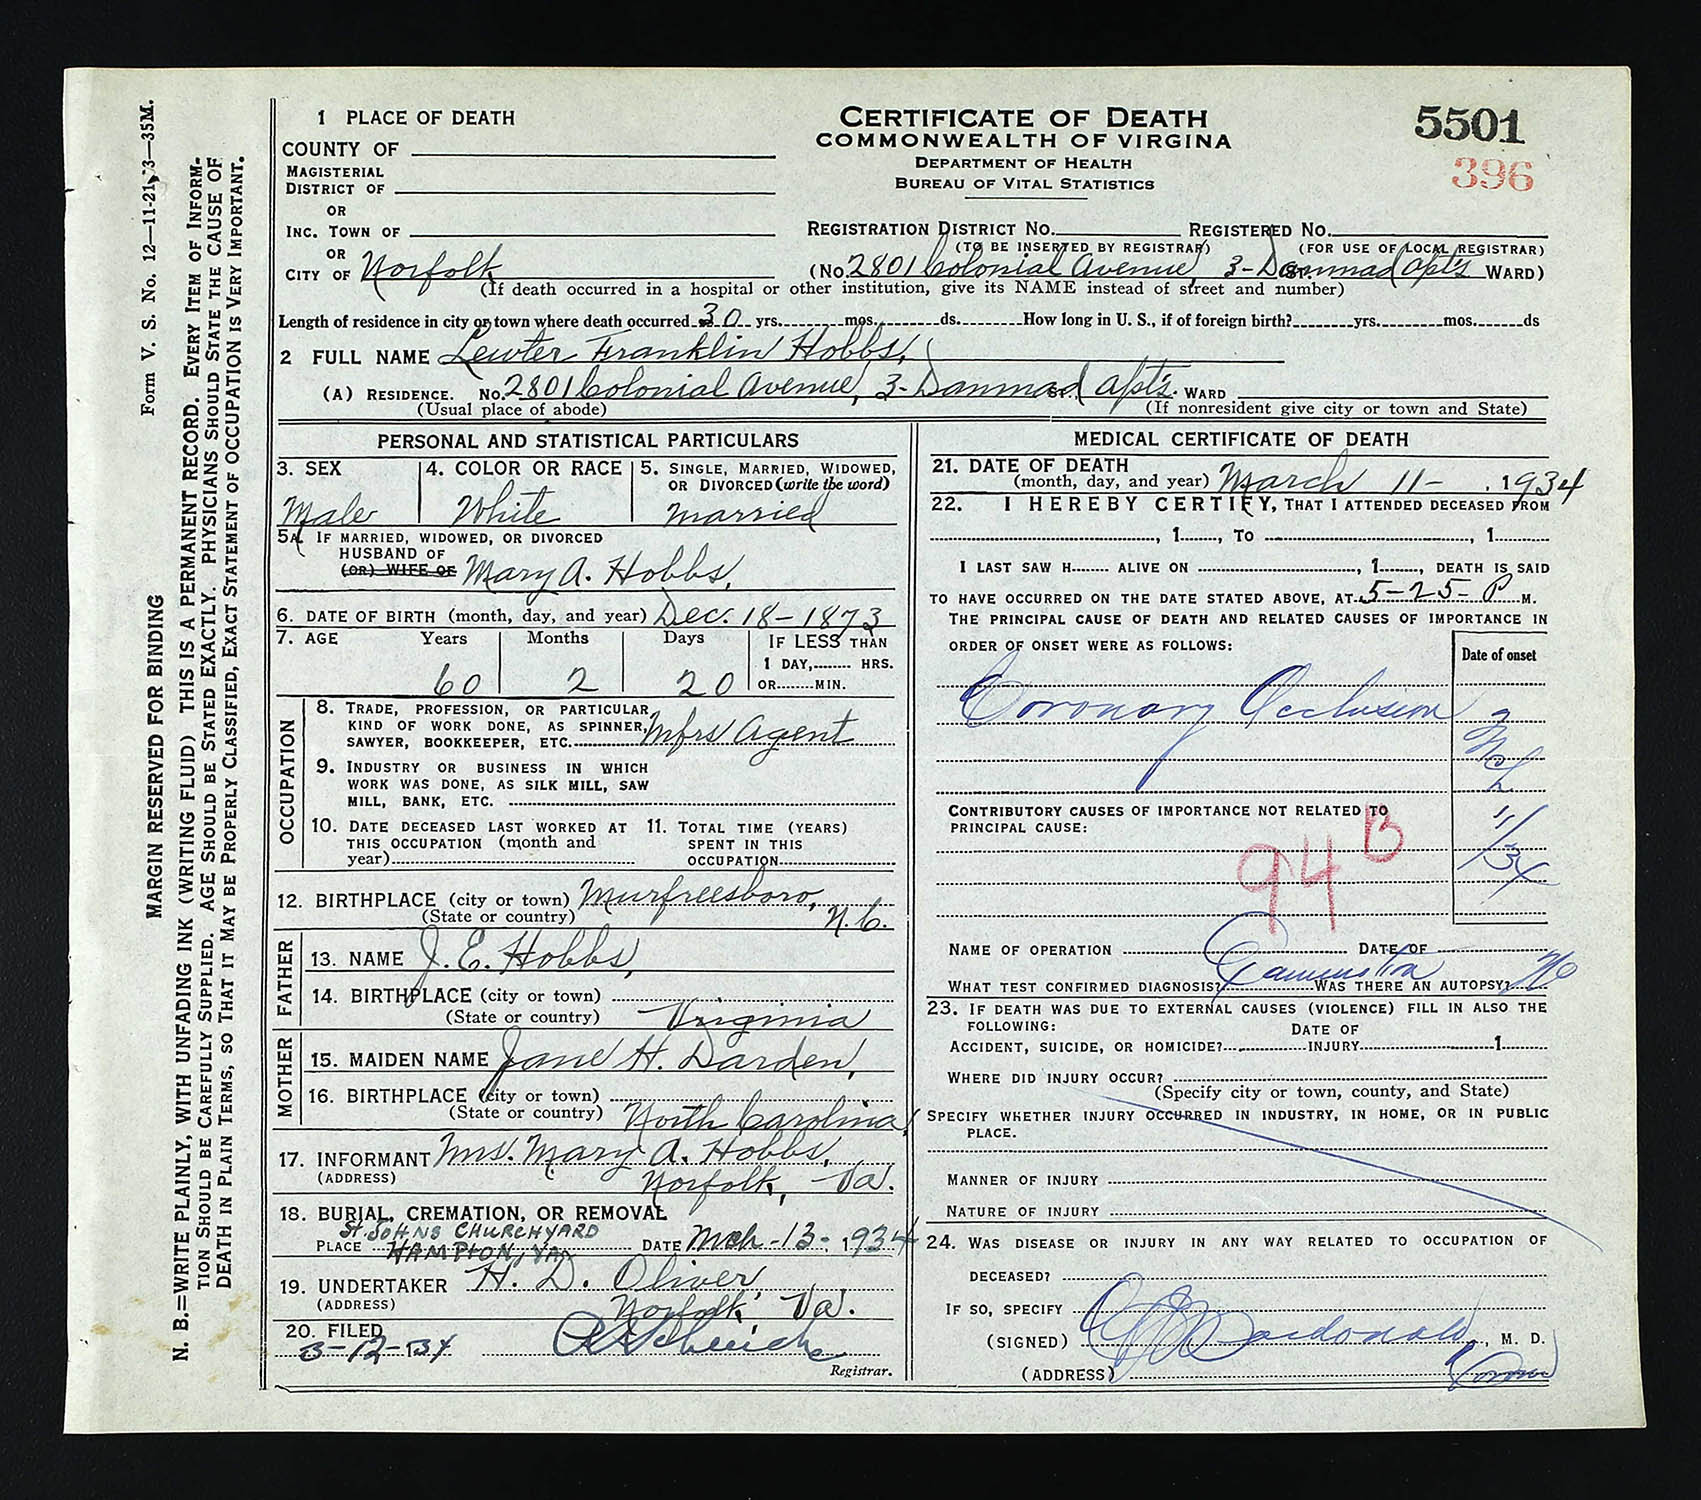 Form V. S. No. 12—11-21-33—35M.
MARGIN RESERVED FOR BINDING
N. B.=WRITE PLAINLY, WITH UNFADING INK (WRITING FLUID) THIS IS A PERMANENT RECORD. EVERY ITEM OF INFORM-
TION SHOULD BE CAREFULLY SUPPLIED. AGE SHOULD BE STATED EXACTLY. PHYSICIANS SHOULD STATE THE CAUSE OF
DEATH IN PLAIN TERMS, SO THAT IT MAY BE PROPERLY CLASSIFIED, EXACT STATEMENT OF OCCUPATION IS VERY IMPORTANT.
1 PLACE OF DEATH
COUNTY OF
MAGISTERIAL
DISTRICT OF
OR
INC. TOWN OF
OR
CITY OF Norfolk
CERTIFICATE OF DEATH
COMMONWEALTH OF VIRGINA
DEPARTMENT OF HEALTH
BUREAU OF VITAL STATISTICS
5501
396
REGISTRATION DISTRICT NO. REGISTERED NO.
(TO BE INSERTED BY REGISTRAR) (FOR USE OF LOCAL REGISTRAR)
(NO. 2801 Colonial Avenue, 3-Danmad Apt's ST. WARD)
(If death occurred in a hospital or other institution, give its NAME instead of street and number)
Length of residence in city or town where death occurred 30 yrs. mos. ds. How long in U. S., if of foreign birth? yrs. mos. ds
2 FULL NAME Lewter Franklin Hobbs,
(A) RESIDENCE. NO. 2801 Colonial Avenue, 3-Danmad Apt's. ST. WARD
(Usual place of abode) (If nonresident give city or town and State)
PERSONAL AND STATISTICAL PARTICULARS
3. SEX 4. COLOR OR RACE 5. SINGLE, MARRIED, WIDOWED,
OR DIVORCED (write the word)
Male White Married
5A. IF MARRIED, WIDOWED, OR DIVORCED
HUSBAND OF
(OR) WIFE OF Mary A. Hobbs,
6. DATE OF BIRTH (month, day, and year) Dec. 18-1873
7. AGE Years Months Days IF LESS THAN
1 DAY, HRS.
60 2 20 OR MIN.
OCCUPATION
8. TRADE, PROFESSION, OR PARTICULAR
KIND OF WORK DONE, AS SPINNER,
SAWYER, BOOKKEEPER, ETC. Mfrs Agent
9. INDUSTRY OR BUSINESS IN WHICH
WORK WAS DONE, AS SILK MILL, SAW
MILL, BANK, ETC.
10. DATE DECEASED LAST WORKED AT 11. TOTAL TIME (YEARS)
THIS OCCUPATION (month and SPENT IN THIS
year) OCCUPATION
12. BIRTHPLACE (city or town) Murfreesboro,
(State or country) N.C.
FATHER
13. NAME J. E. Hobbs,
14. BIRTHPLACE (city or town)
(State or country) Virginia
MOTHER
15. MAIDEN NAME Jane H. Darden,
16. BIRTHPLACE (city or town)
(State or country) North Carolina,
17. INFORMANT Mrs. Mary A. Hobbs,
(ADDRESS) Norfolk, Va.
18. BURIAL, CREMATION, OR REMOVAL
St. JOHNS CHURCHYARD
PLACE HAMPTON, VA DATE Mch-13-, 1934
19. UNDERTAKER H. D. Oliver,
(ADDRESS) Norfolk, Va.
20. FILED
3-12-34
Registrar.
MEDICAL CERTIFICATE OF DEATH
21. DATE OF DEATH
(month, day, and year) March 11-, 1934
22. I HEREBY CERTIFY, THAT I ATTENDED DECEASED FROM
, 1 , TO , 1
I LAST SAW H ALIVE ON , 1 , DEATH IS SAID
TO HAVE OCCURRED ON THE DATE STATED ABOVE, AT 5-25-P M.
THE PRINCIPAL CAUSE OF DEATH AND RELATED CAUSES OF IMPORTANCE IN
ORDER OF ONSET WERE AS FOLLOWS:
Date of onset
Coronary Occlusion
11/34
CONTRIBUTORY CAUSES OF IMPORTANCE NOT RELATED TO
PRINCIPAL CAUSE:
94 B
NAME OF OPERATION DATE OF
WHAT TEST CONFIRMED DIAGNOSIS? Examination WAS THERE AN AUTOPSY? No
23. IF DEATH WAS DUE TO EXTERNAL CAUSES (VIOLENCE) FILL IN ALSO THE
FOLLOWING: DATE OF
ACCIDENT, SUICIDE, OR HOMICIDE? INJURY 1
WHERE DID INJURY OCCUR?
(Specify city or town, county, and State)
SPECIFY WHETHER INJURY OCCURRED IN INDUSTRY, IN HOME, OR IN PUBLIC
PLACE.
MANNER OF INJURY
NATURE OF INJURY
24. WAS DISEASE OR INJURY IN ANY WAY RELATED TO OCCUPATION OF
DECEASED?
IF SO, SPECIFY
(SIGNED) Macdonald, M. D.
(ADDRESS)